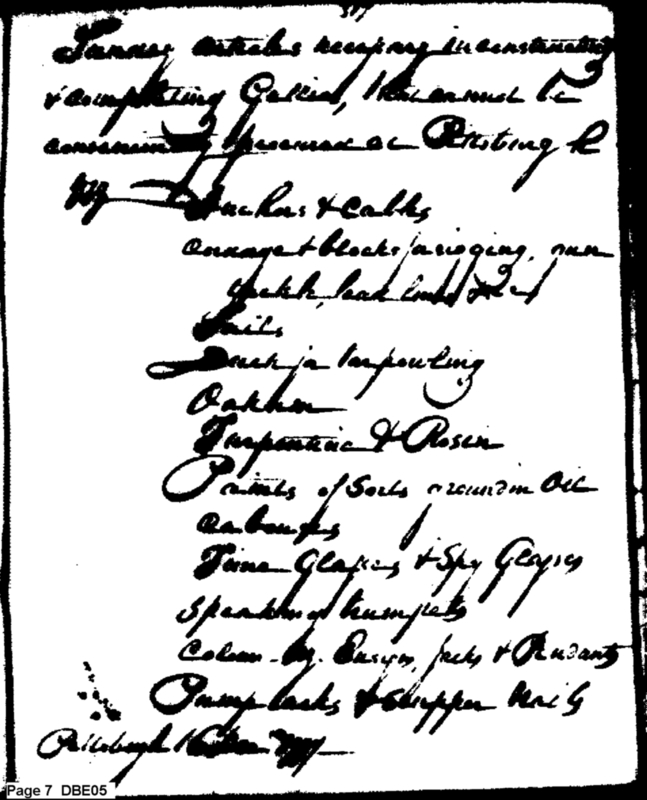 Sundry articles necessary in constructing
& compleating Gallies, that cannot be
conveniently procured at Pittsburg
Anchors & Cables
Cordage & blocks for rigging, gun
tackle, lead lines &c
Sails
Duck for tarpouling
Oakum
Turpentine & Rosin
Paints of Sorts ground in Oil
Cabouses
Time Glasses & Spy Glasses
Speaking trumpets
Colours Ensigns, Jacks & Pendants
Pump tacks & Scupper Nails
Pittsburgh
Page 7 DBE05